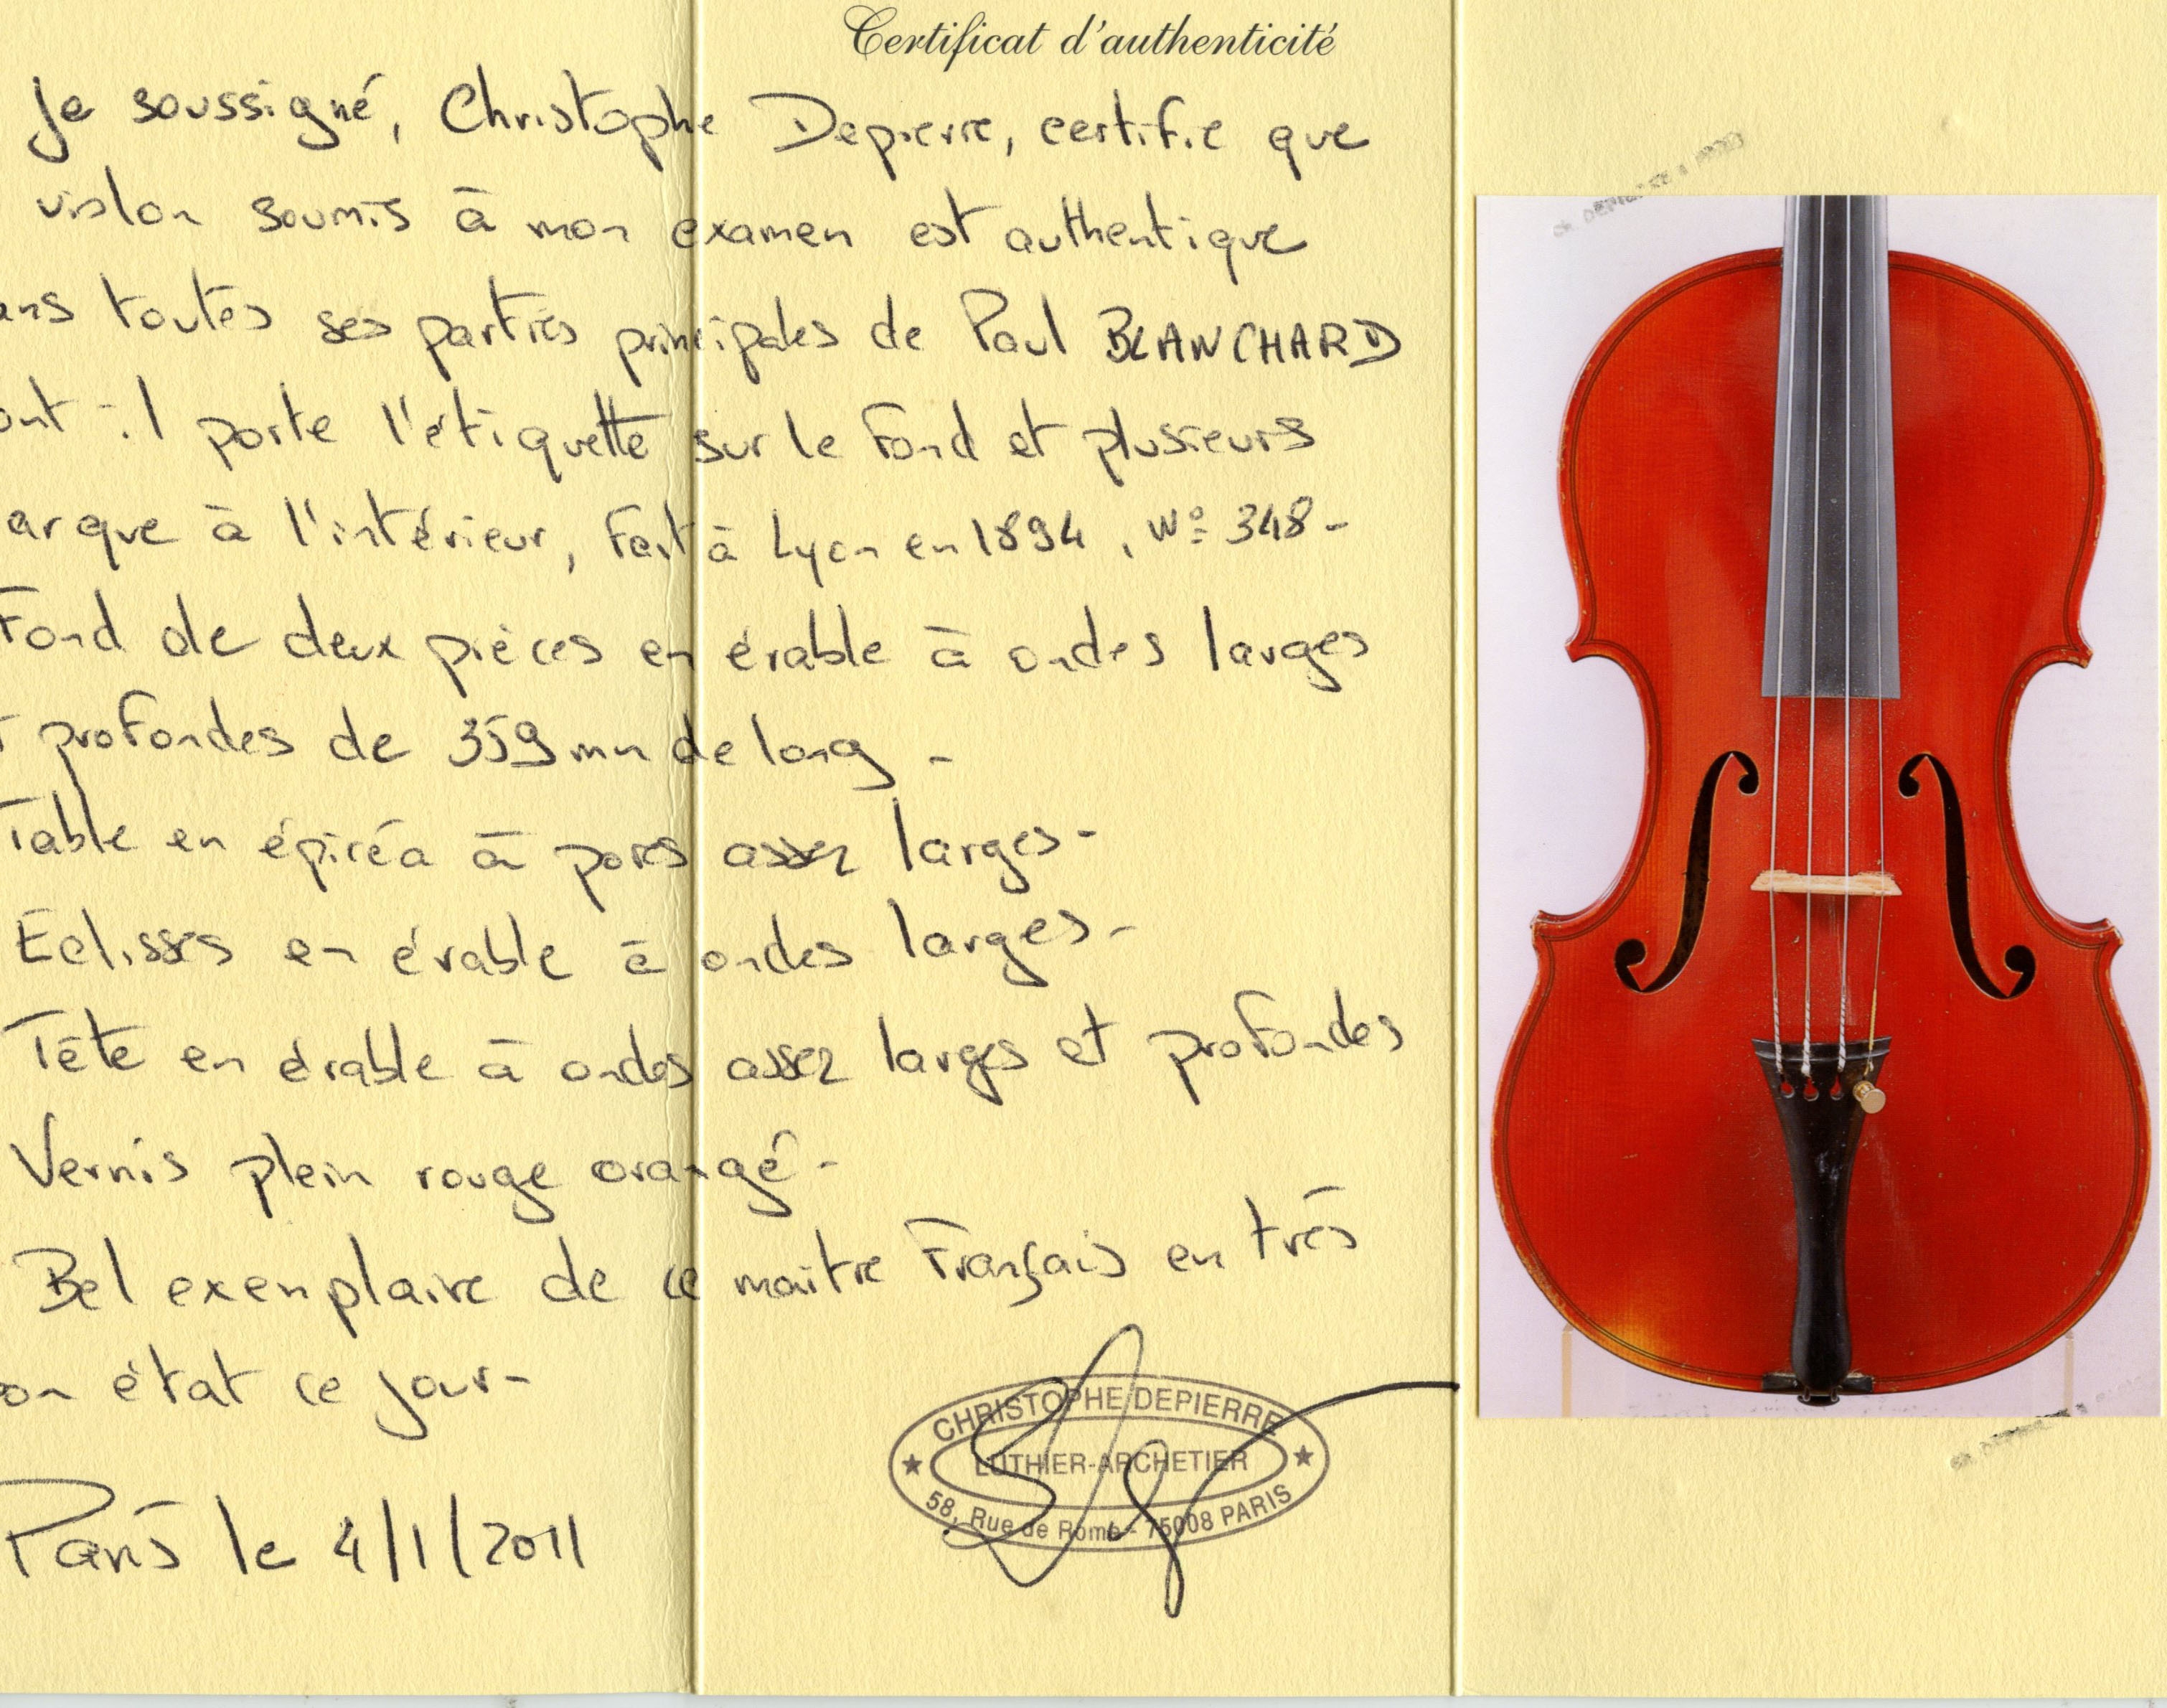 Certificat d'authenticité
Je soussigné, Christophe Depierre, certifie que
violon soumis à mon examen est authentique
ans toutes ses parties principales de Paul BLANCHARD
ont il porte l'étiquette sur le fond et plusieurs
arque à l'intérieur, fait à Lyon en 1894, N° 348-
Fond de deux pièces en érable à ondes larges
t profondes de 359 mm de long -
Table en épicéa à pores assez larges-
Eclisses en érable à ondes larges-
Tête en érable à ondes assez larges et profondes
Vernis plein rouge orangé-
Bel exemplaire de ce maitre Français en très
on état ce jour-
Paris le 4/1/2011
CHRISTOPHE DEPIERRE
LUTHIER-ARCHETIER
58, Rue de Rome - 75008 PARIS